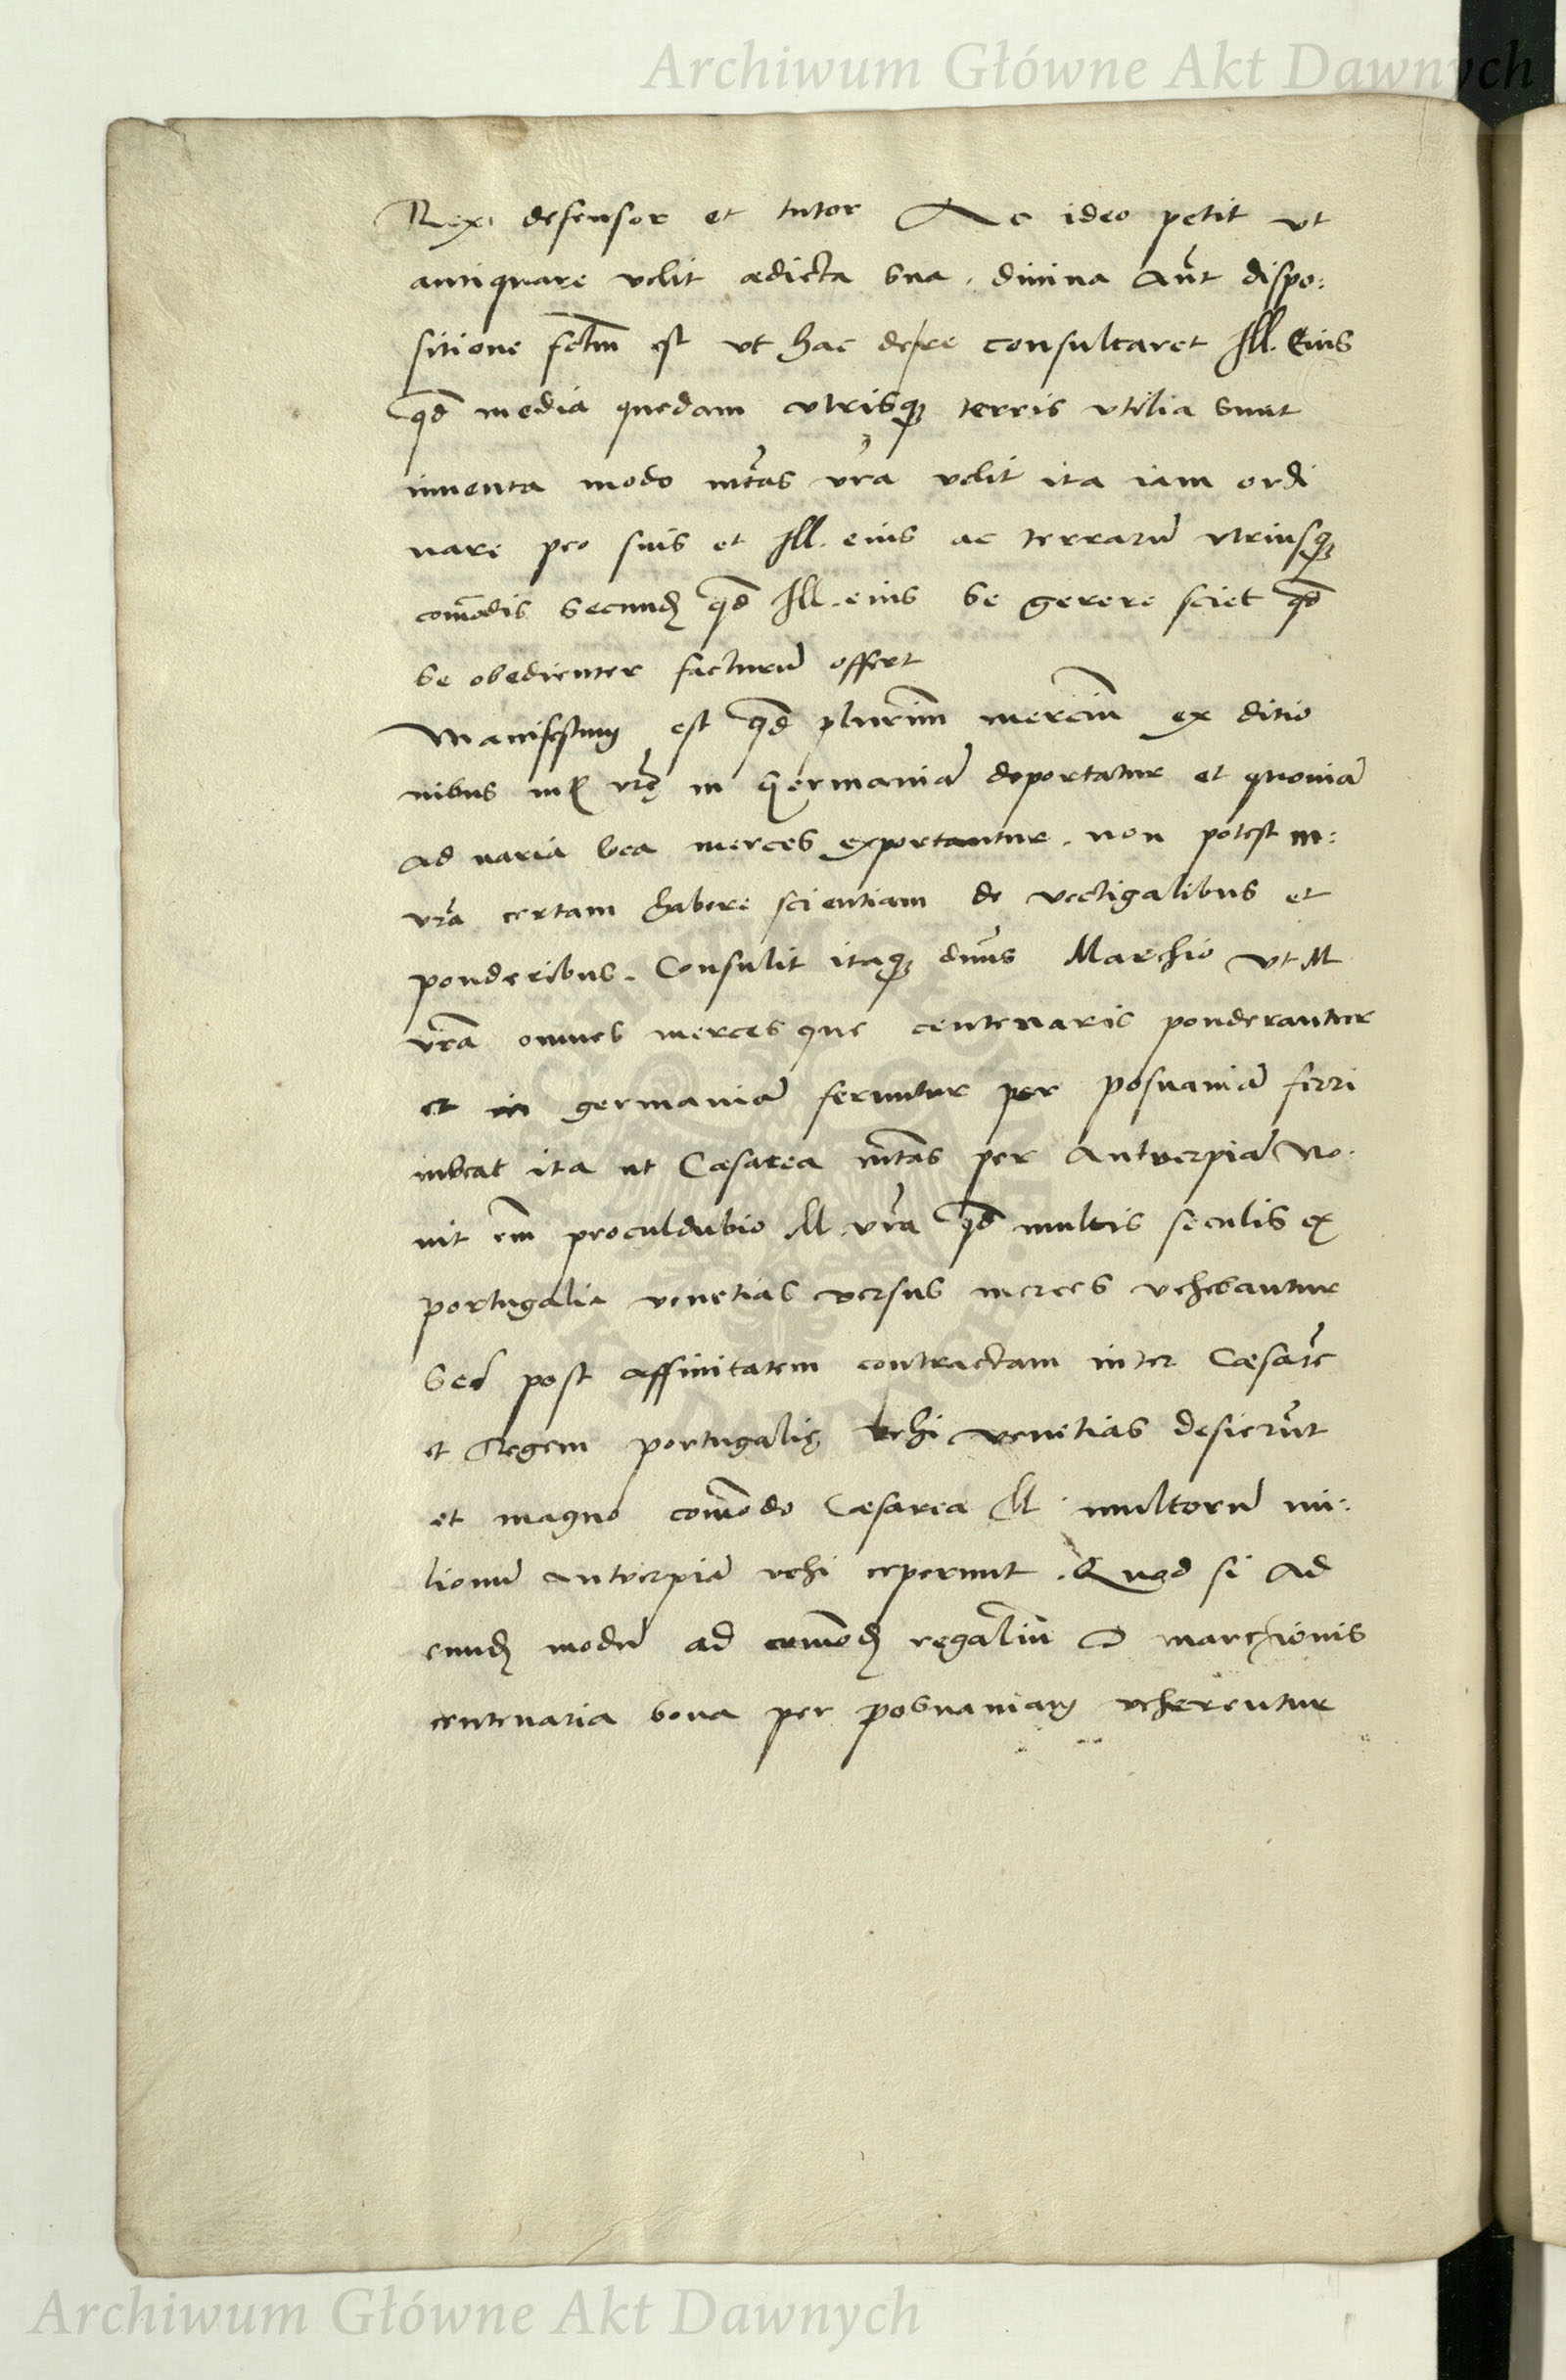 Archiwum Główne Akt Dawnych
Rex defensor et tutor Ac ideo petit ut
antiquare velit ædicta sua, divina aūt dispo:
sitione fctm̄ est ut hac de re consultaret Ill. Eius
qd̄ media quedam utrisq; terris utilia sunt
inventa modo mtās vr̄a velit ita iam ordi
nare pro suis et Ill. eius ac terrarū utriusq;
com̄odis secund; qd̄ Ill. eius se gerere sciet qd̄
se obedienter facturū offert
Manifestum est qd̄ plurim̄ merciū ex ditio
nibus mt vrē in Germaniā deportatur et quoniā
ad varia loca merces exportantur, non potest m:
vr̄a certam habere scientiam de vectigalibus et
ponderibus. Consulit itaq; dn̄us Marchio ut M
vr̄a omnes merces que centenaris ponderantur
et in germaniā feruntur per posnaniā ferri
iubeat ita ut Cæsarea mtās per Antverpiā No:
vit em̄ proculdubio M. vr̄a qd̄ multis seculis ex
portugalia venetias versus merces vehebantur
Sed post affinitatem contractam inter Cæsarē
et Regem portugalię vehi venetias desierūt
et magno com̄odo Cæsarea M. multorū mi:
lionū antverpiā vehi ceperunt. Quod si ad
eund; modū ad com̄od; regaliū D marchionis
centenaria bona per posnaniam veherentur
Archiwum Główne Akt Dawnych